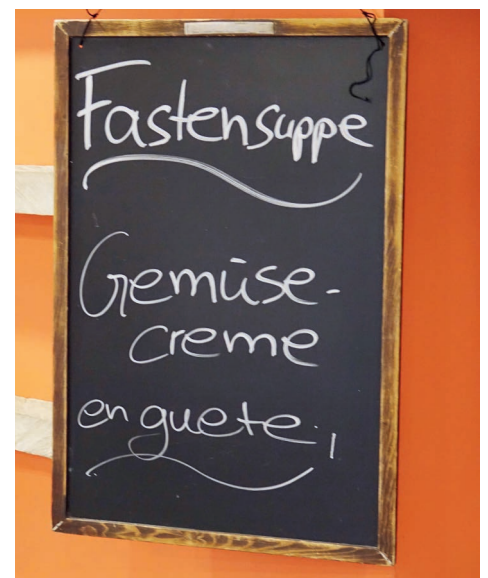 Fastensuppe
Gemüse-
creme
en guete!